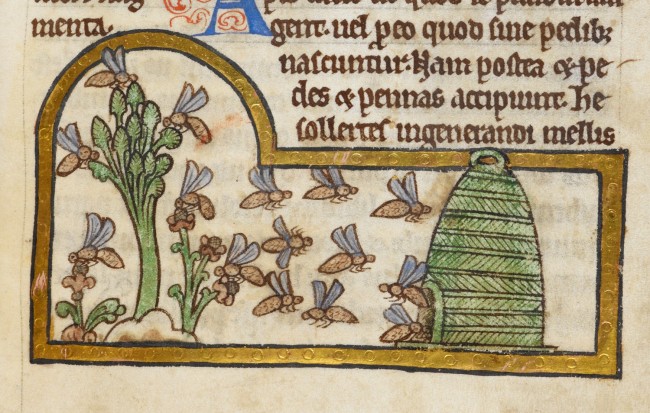 menta. gent. uel ꝑ eo quod sine pedibꝫ
nascuntur. Nam postea ⁊ pe
des ⁊ pennas accipiunt. He
sollertes ingenerandi mellis